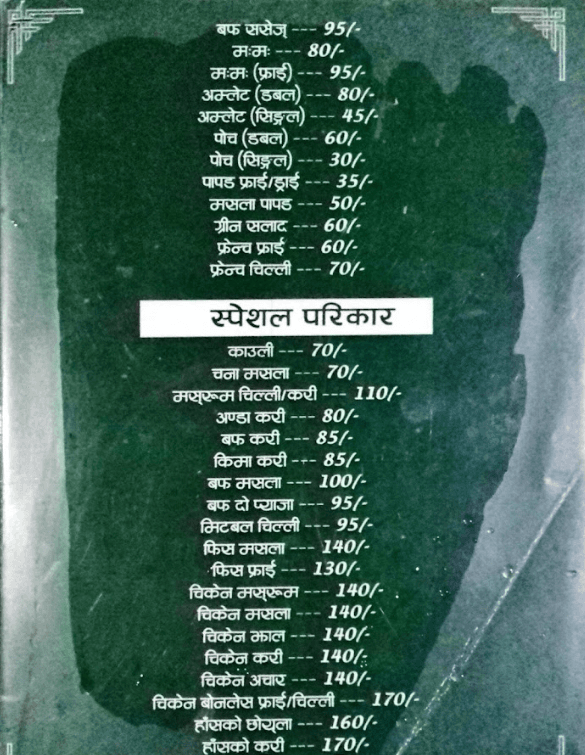 बफ ससेज् --- 95/-
मःमः --- 80/-
मःमः (फ्राई) --- 95/-
अम्लेट (डबल) --- 80/-
अम्लेट (सिङ्गल) --- 45/-
पोच (डबल) --- 60/-
पोच (सिङ्गल) --- 30/-
पापड फ्राई/ड्राई --- 35/-
मसला पापड --- 50/-
ग्रीन सलाद --- 60/-
फ्रेन्च फ्राई --- 60/-
फ्रेन्च चिल्ली --- 70/-
स्पेशल परिकार
काउली --- 70/-
चना मसला --- 70/-
मस्रूम चिल्ली/करी --- 110/-
अण्डा करी --- 80/-
बफ करी --- 85/-
किमा करी --- 85/-
बफ मसला --- 100/-
बफ दो प्याजा --- 95/-
मिटबल चिल्ली --- 95/-
फिस मसला --- 140/-
फिस फ्राई --- 130/-
चिकेन मस्रूम --- 140/-
चिकेन मसला --- 140/-
चिकेन झाल --- 140/-
चिकेन करी --- 140/-
चिकेन अचार --- 140/-
चिकेन बोनलेस फ्राई/चिल्ली --- 170/-
हाँसको छोय्ला --- 160/-
हाँसको करी --- 170/-